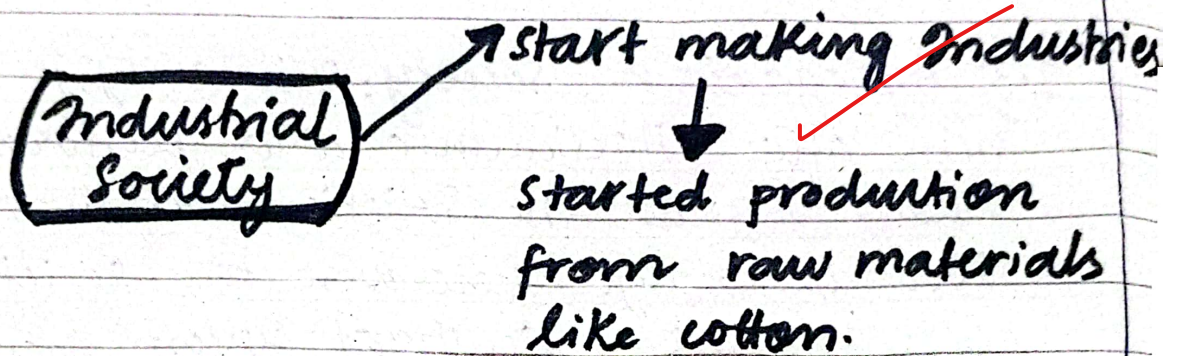 Industrial
Society
start making Industries
started production
from raw materials
like cotton.